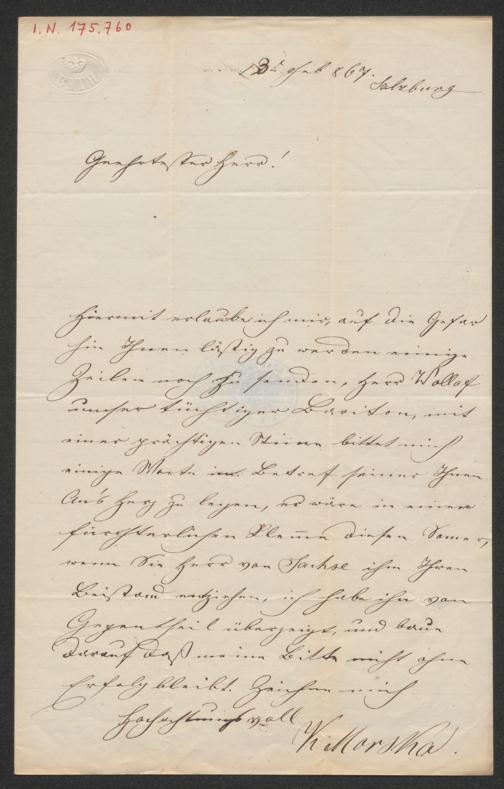 I.N. 175.760
BATH
13t Feb 867.
Salzburg
Geehrtester Herr!
Hiermit erlaube ich mir, auf die Gefar
hin Ihnen lästig zu werden einige
Zeilen noch zu senden, Herr Wollaf
unser tüchtiger Bariton, mit
einer prächtigen Stime bittet mich
einige Worte im Betref seiner Ihnen
An's Herz zu legen, er wäre in einer
fürchterlichen Kleme diesen Somer,
wenn Sie Herr von Sachse ihm Ihren
Beistand entziehen, ich habe ihn von
Gegentheil überzeigt, und baue
darauf daß meine Bitte nicht ohne
Erfolg bleibt. Zeichne mich
Hochachtungsvoll
K Morska.